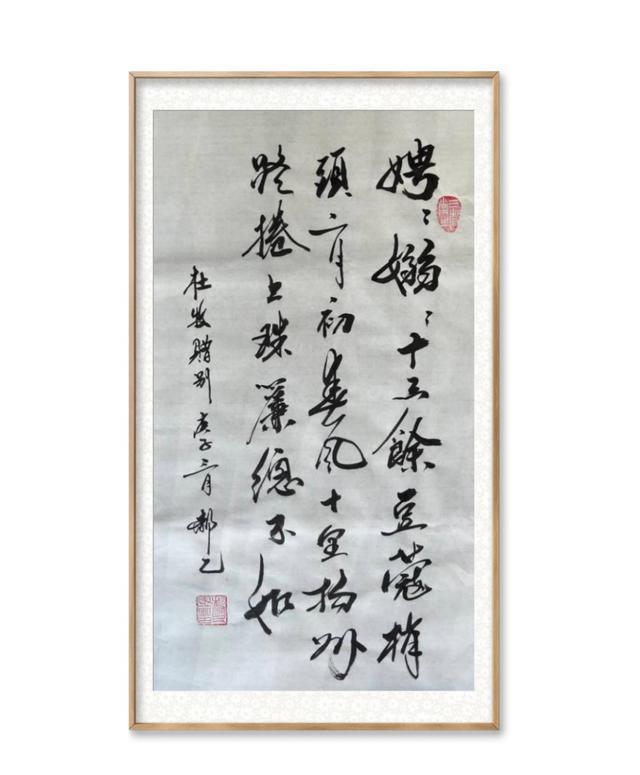 娉〻嫋〻十三餘豆蔻梢
頭二月初春風十里揚州
路捲上珠簾總不如
杜牧贈別 庚子三月